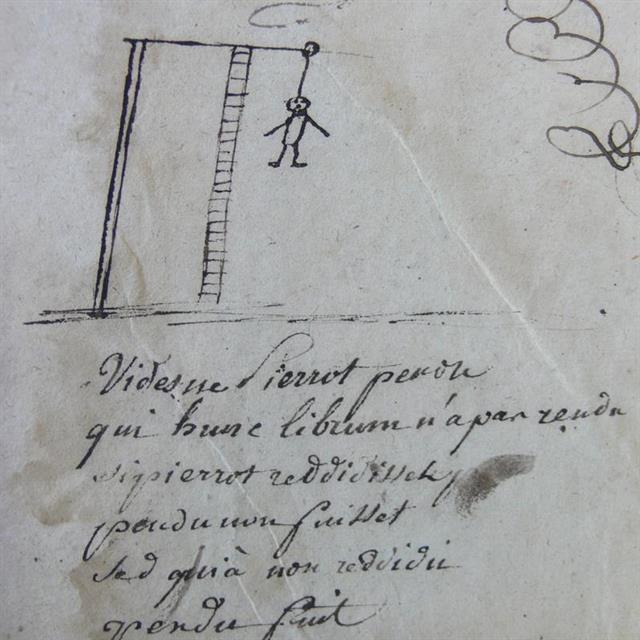 Videsne Pierrot pendu
qui hunc librum n'a pas rendu
si pierrot reddidisset
pendu non fuisset
sed quia non reddidit
pendu fuit